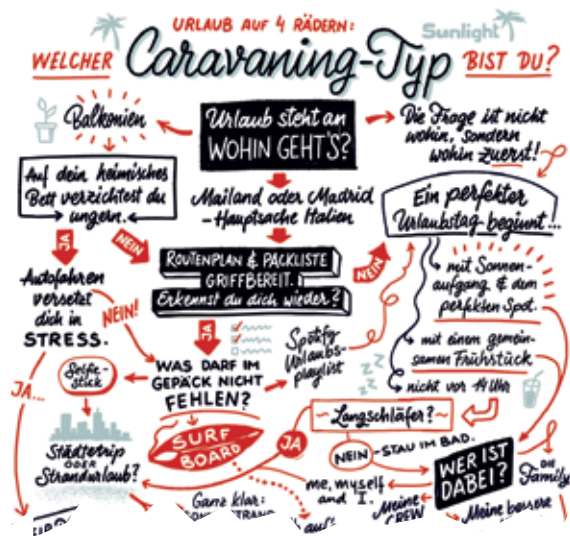 URLAUB AUF 4 RÄDERN:
Sunlight
WELCHER Caravaning-Typ BIST DU?
Balkonien
Urlaub steht an
WOHIN GEHT'S?
Die Frage ist nicht
wohin, sondern
wohin zuerst!
Auf dein heimisches
Bett verzichtest du
ungern.
Mailand oder Madrid
- Hauptsache Italien
Ein perfekter
Urlaubstag beginnt...
JA
NEIN
ROUTENPLAN & PACKLISTE
GRIFFBEREIT.
Erkennst du dich wieder?
NEIN
mit Sonnen-
aufgang & dem
perfekten Spot.
Autofahren
versetzt
dich in
STRESS.
NEIN!
JA
Spotify
Urlaubs-
playlist
mit einem gemein-
samen Frühstück
nicht vor 14 Uhr
JA...
Selfie-
stick
WAS DARF IM
GEPÄCK NICHT
FEHLEN?
SURF
BOARD
~Langschläfer?~
JA
NEIN - STAU IM BAD.
Städtetrip
ODER
Strandurlaub?
WER IST
DABEI?
DIE
Family
me, myself
and I.
Meine
CREW
Meine bessere
Ganz klar: